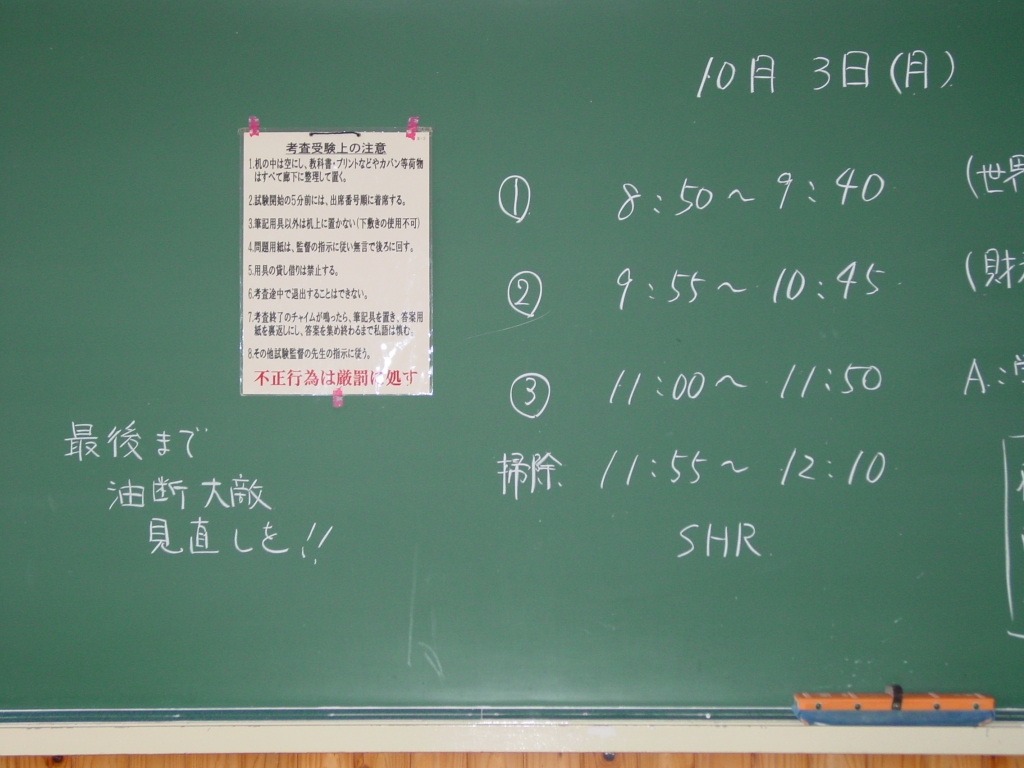 10月 3日(月)
考査受験上の注意
1.机の中は空にし、教科書・プリントなどやカバン等荷物
はすべて廊下に整理して置く。
2.試験開始の5分前には、出席番号順に着席する。
3.筆記用具以外は机上に置かない(下敷きの使用不可)
4.問題用紙は、監督の指示に従い無言で後ろに回す。
5.用具の貸し借りは禁止する。
6.考査途中で退出することはできない。
7.考査終了のチャイムが鳴ったら、筆記具を置き、答案用
紙を裏返しにし、答案を集め終わるまで私語は慎む。
8.その他試験監督の先生の指示に従う。
不正行為は厳罰に処す
① 8:50〜9:40 (世界
② 9:55〜10:45 (財
③ 11:00〜11:50 A:
掃除 11:55〜12:10
SHR
最後まで
油断大敵
見直しを!!